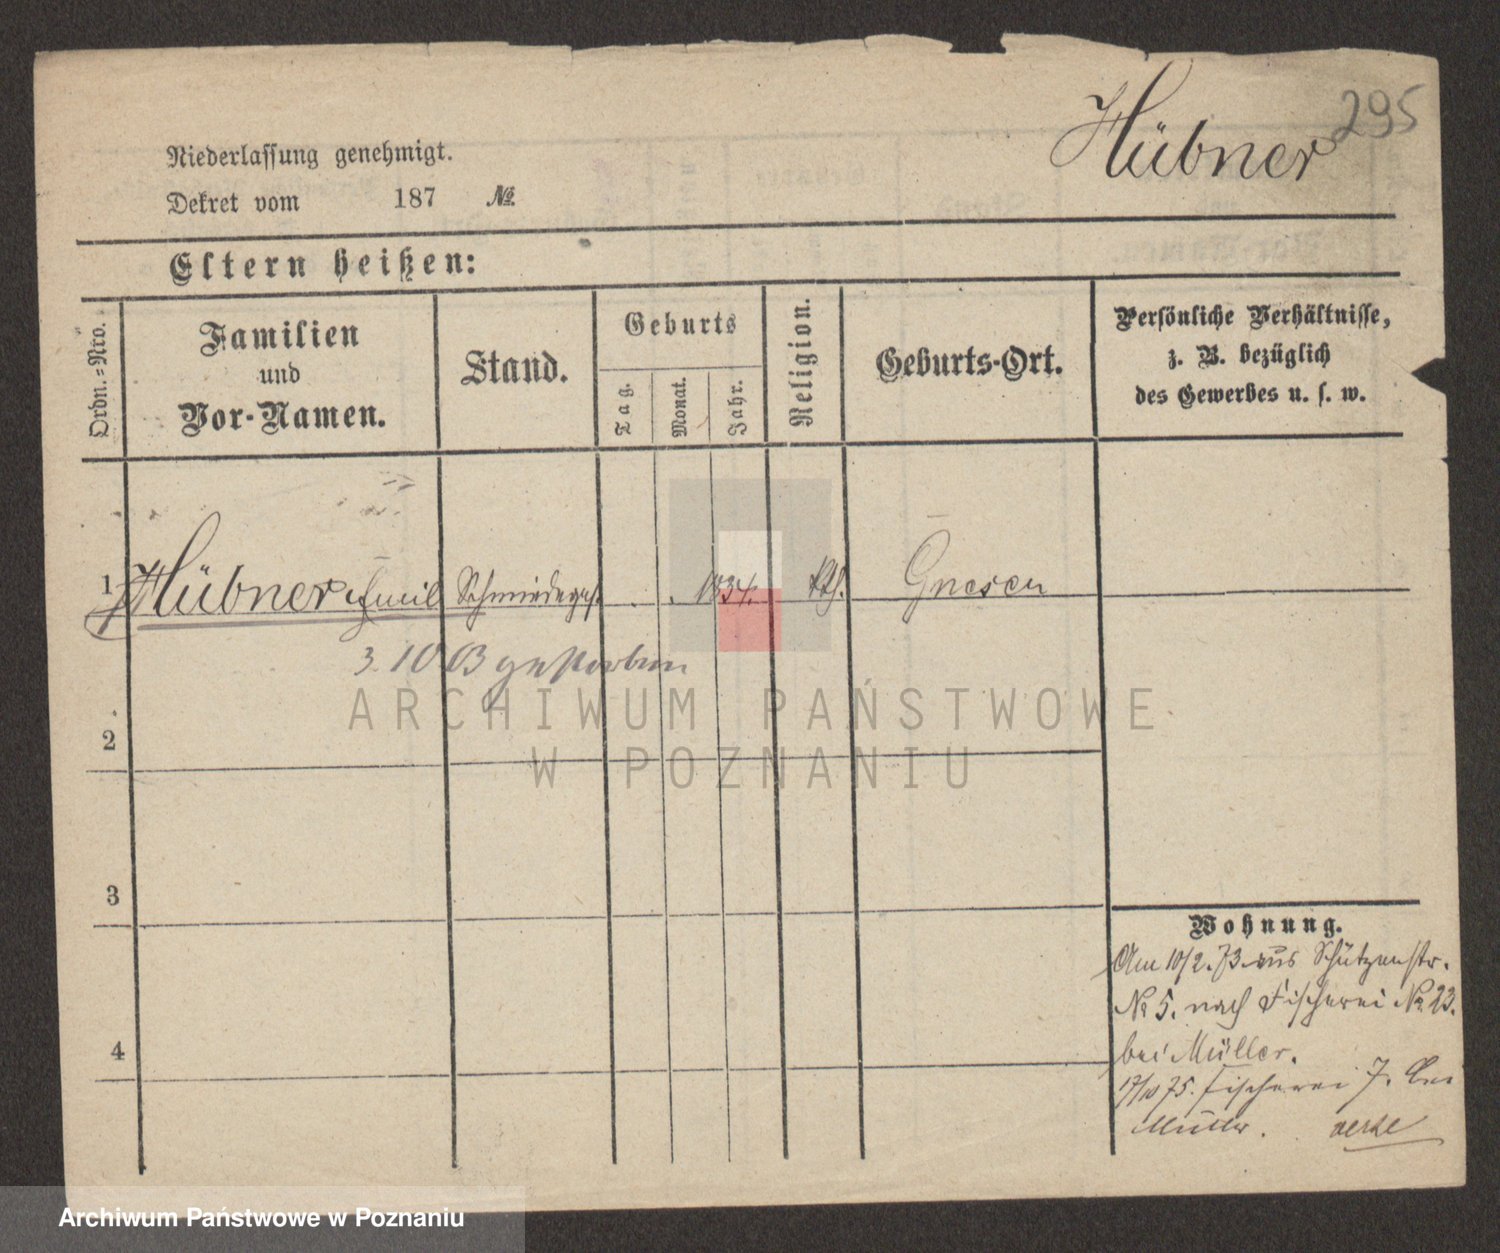 Hübner 295
Niederlassung genehmigt.
Dekret vom 187 №
Eltern heißen:
Ordn.=Nro.
Familien
und
Vor-Namen.
Stand.
Geburts
Tag.
Monat.
Jahr.
Religion.
Geburts-Ort.
Persönliche Verhältnisse,
z. B. bezüglich
des Gewerbes u. s. w.
1 Hübner Emil Schmiedeges. . . 1834. Kth. Gnesen
3. 10 gestorben
2
3
4
Wohnung.
Am 10/2.73 aus Schützenstr.
№ 5. nach Fischerei № 23.
bei Müller.
17/10 75. Fischerei 7. bei
Müller.
ARCHIWUM PAŃSTWOWE
W POZNANIU
Archiwum Państwowe w Poznaniu